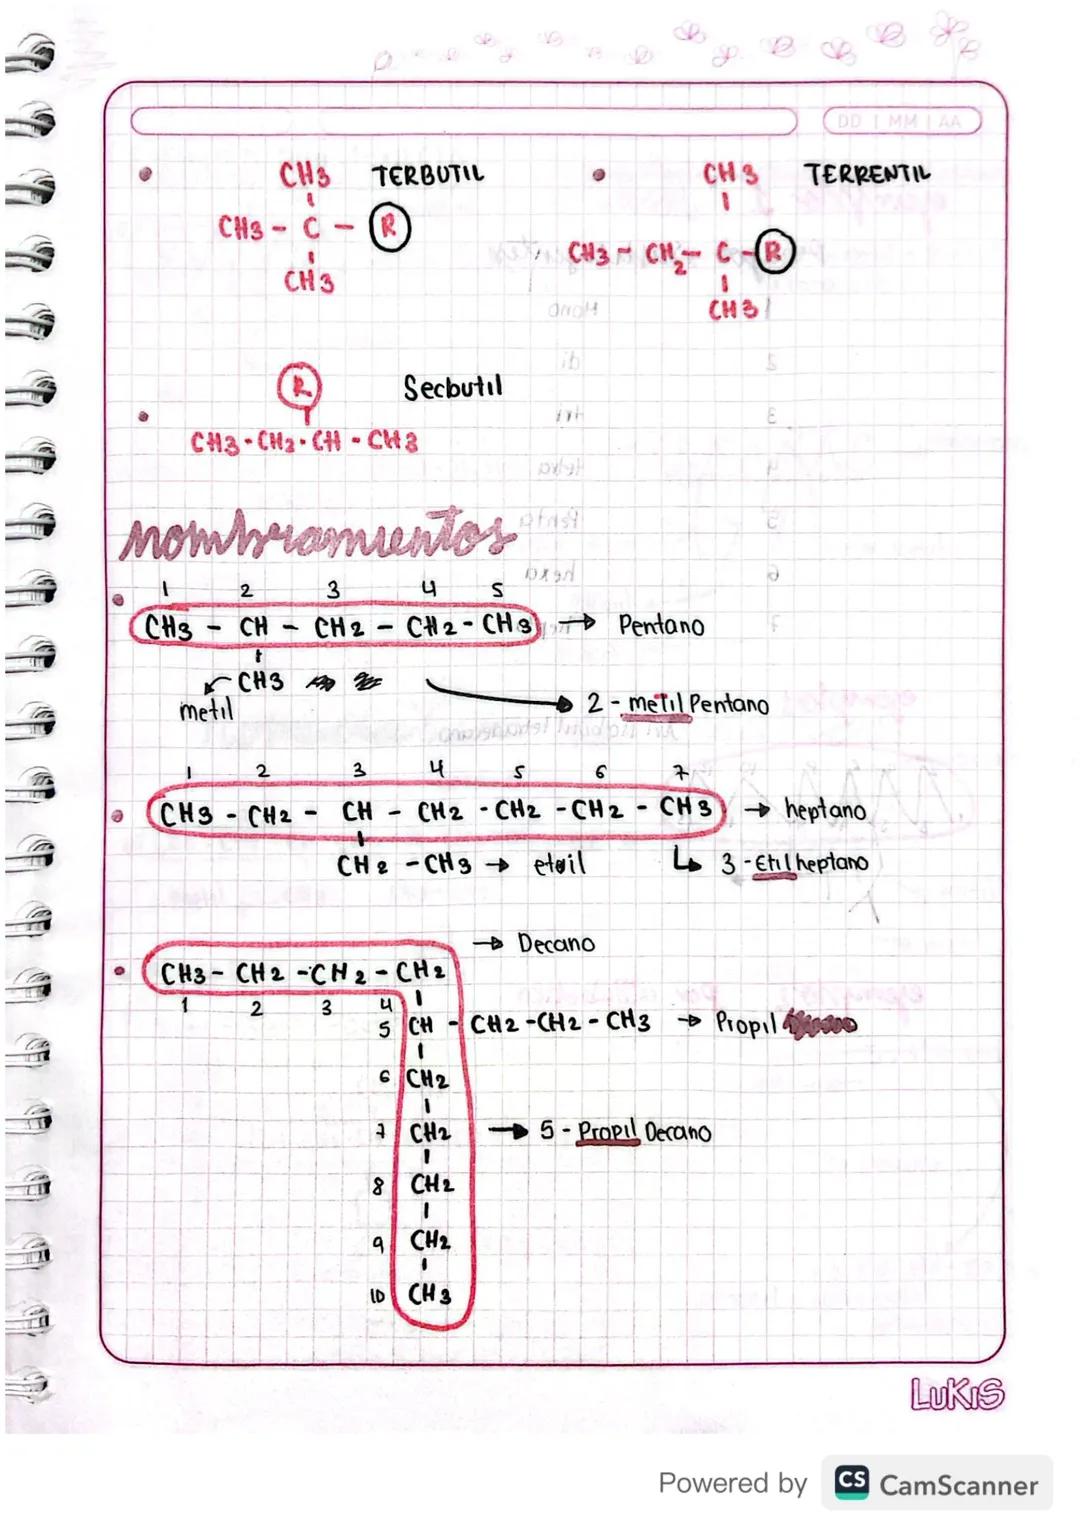 DD | MM | AA
CH3 TERBUTIL
CH3 - C - R
CH3
CH3 TERRENTIL
CH3 - CH2 - C - R
CH3
R Secbutil
CH3 - CH2 - CH - CH3
nombramientos
1 2 3 4 5
CH3 - CH - CH2 - CH2 - CH3 → Pentano
CH3
metil
2 - metil Pentano
1 2 3 4 5 6 7
CH3 - CH2 - CH - CH2 - CH2 - CH2 - CH3 → heptano
CH2 - CH3 → etil
3 - Etil heptano
→ Decano
CH3 - CH2 - CH2 - CH2
1 2 3 4
5 CH - CH2 - CH2 - CH3 → Propil
6 CH2
7 CH2 → 5 - Propil Decano
8 CH2
9 CH2
10 CH3
LuKiS
Powered by CS CamScanner